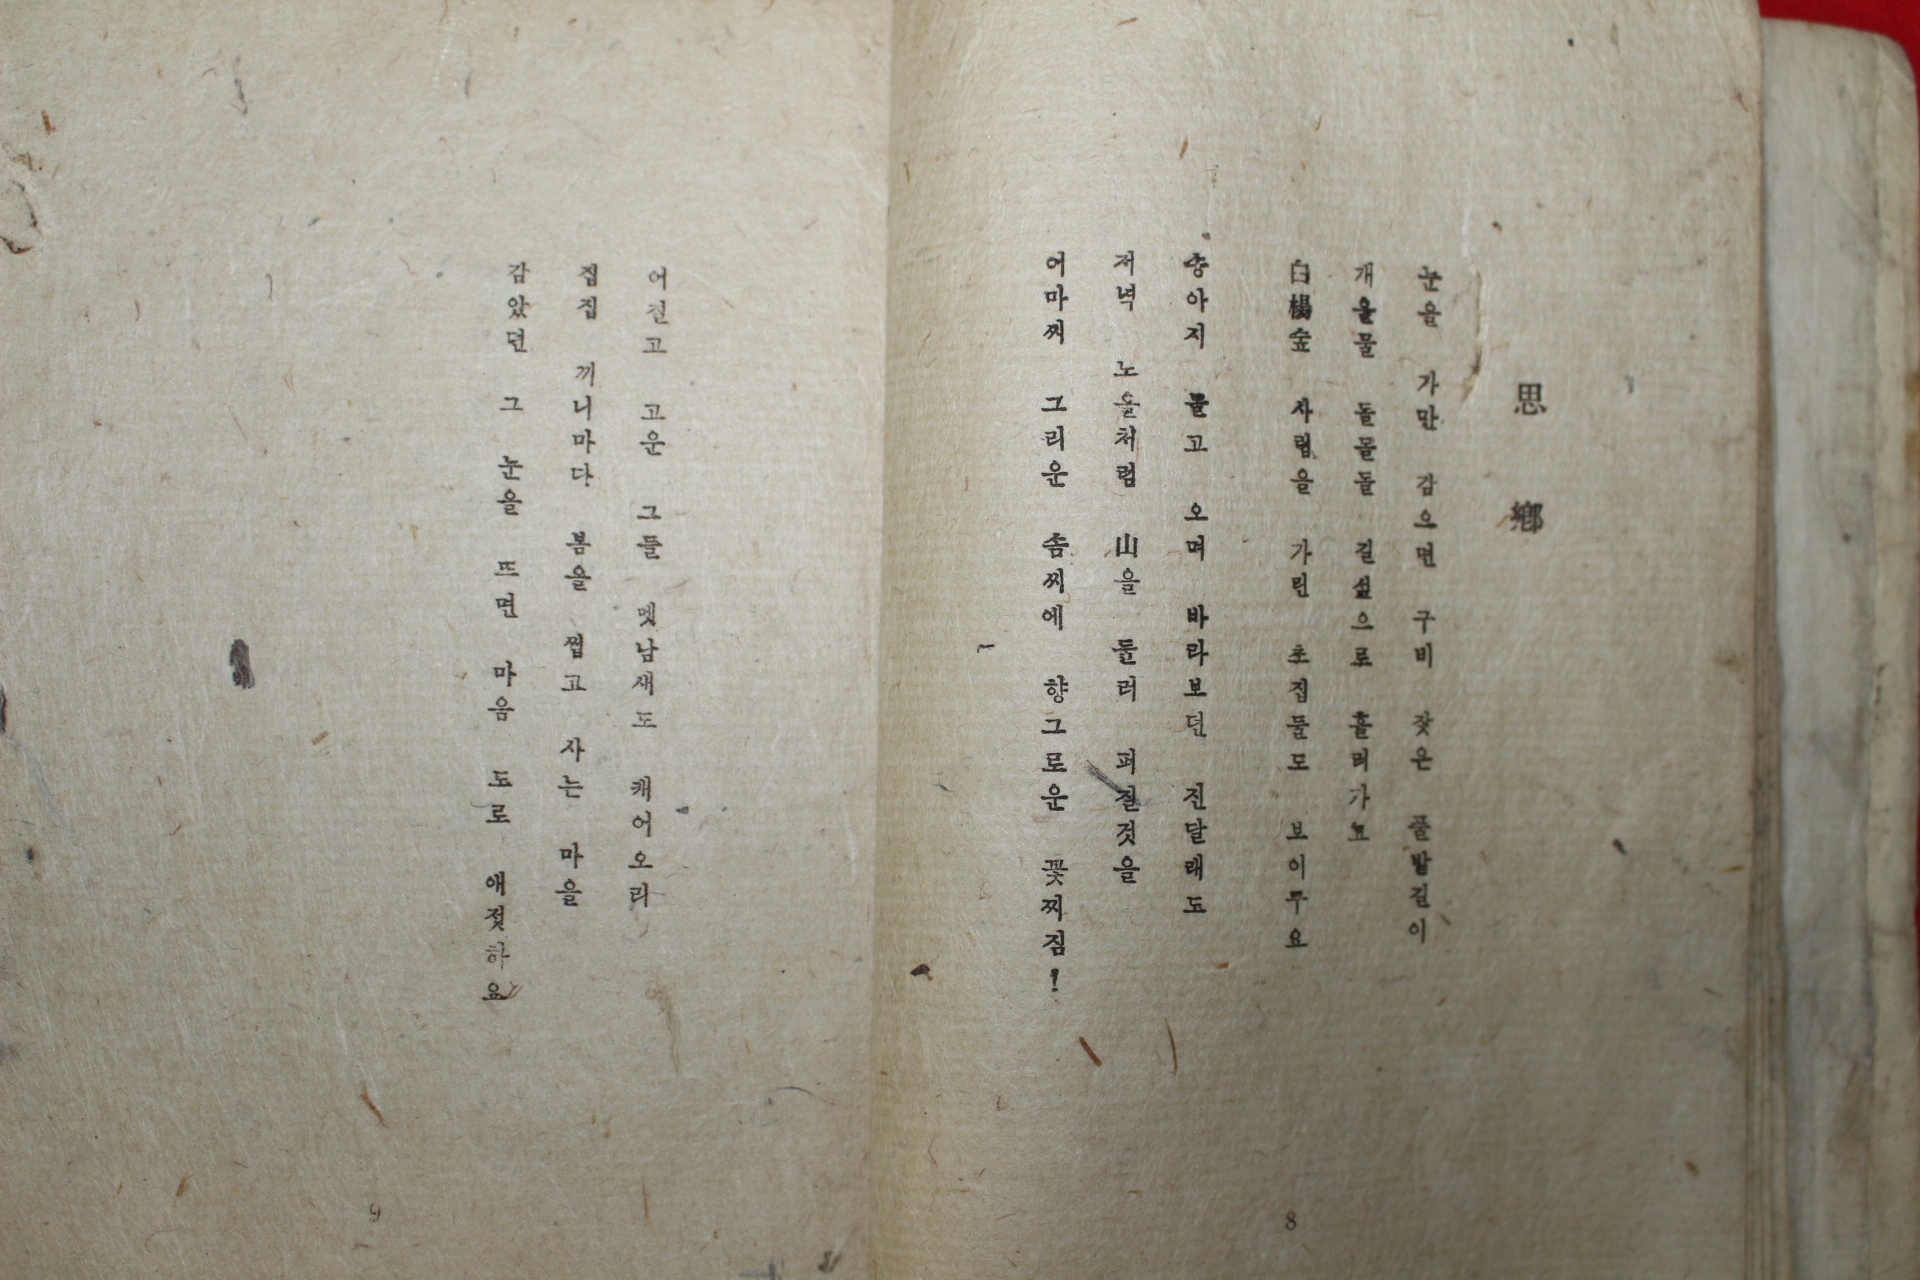 思鄕
눈을 가만 감으면 구비 잦은 풀밭길이
개울물 돌돌돌 길섶으로 흘러가고
白楊숲 사립을 가린 초집들도 보이구요
송아지 몰고 오며 바라보던 진달래도
저녁 노을처럼 山을 둘러 퍼질것을
어마씨 그리운 솜씨에 향그로운 꽃찌짐!
8
어질고 고운 그들 멧남새도 캐어오리
집집 끼니마다 봄을 씹고 사는 마을
감았던 그 눈을 뜨면 마음 도로 애젓하요
9